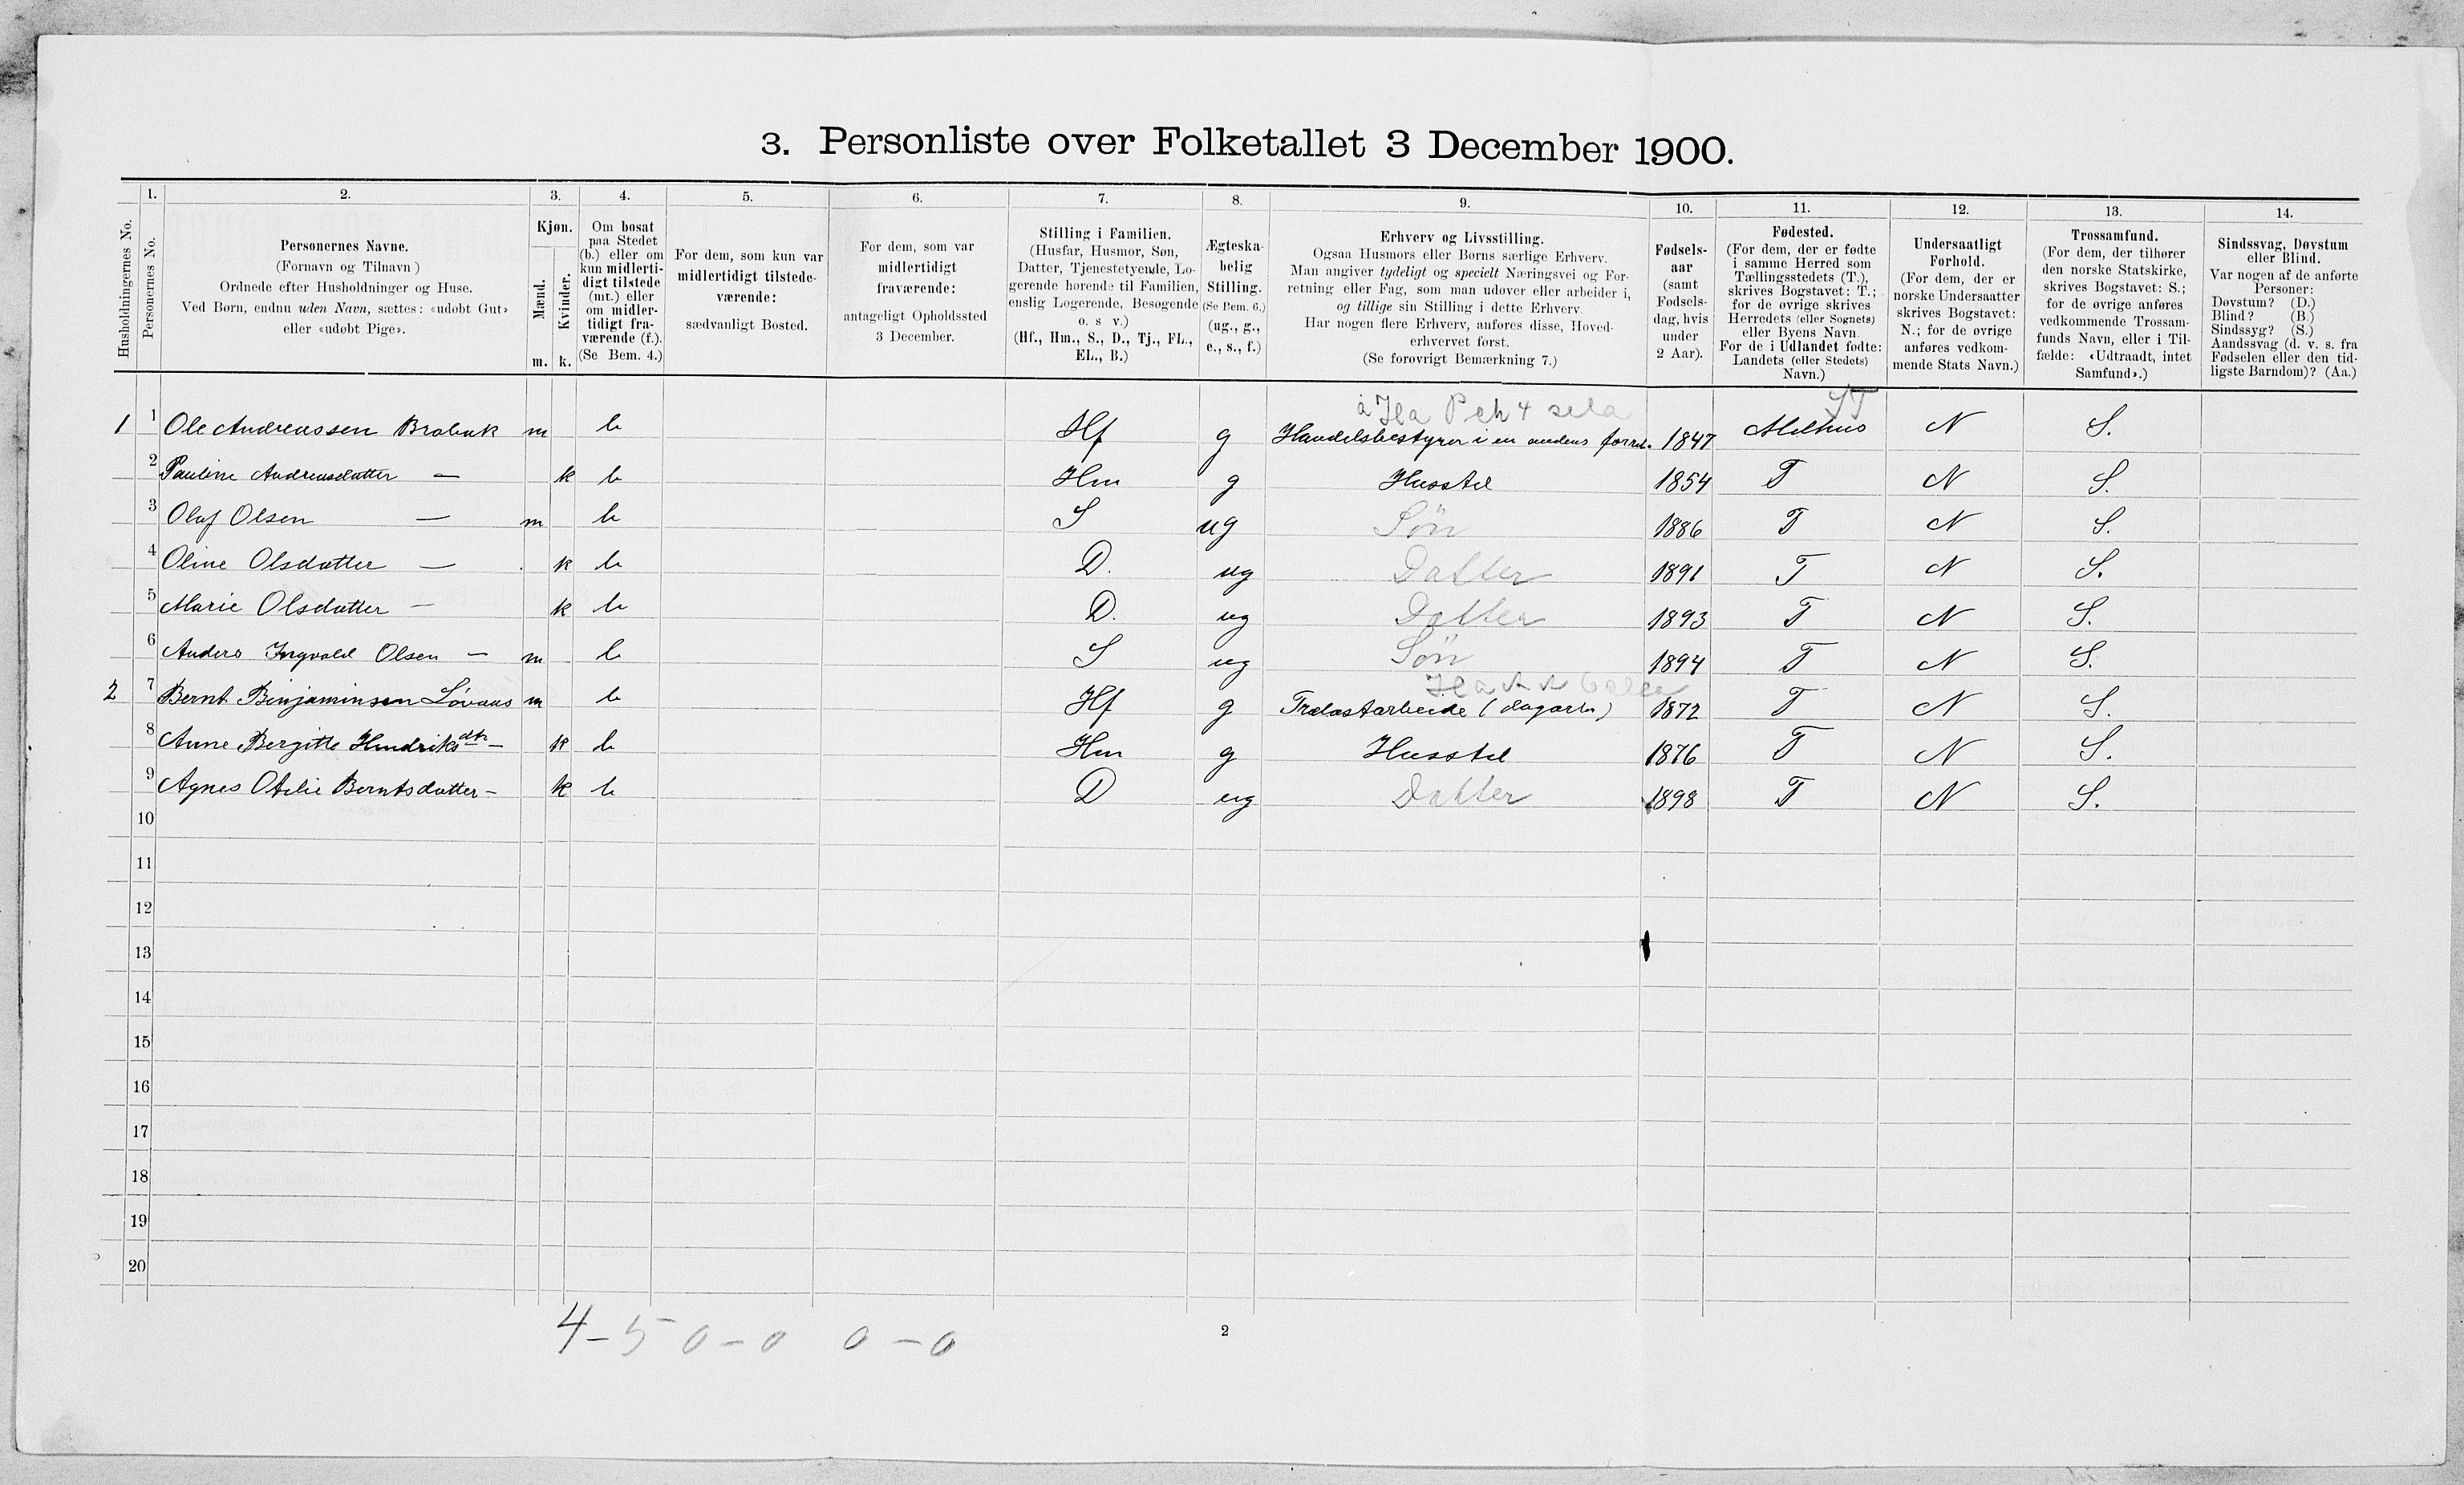 3. Personliste over Folketallet 3 December 1900.
1. 2. 3. 4. 5. 6. 7. 8. 9. 10. 11. 12. 13. 14.
Husholdningernes No.
Personernes No.
Personernes Navne.
(Fornavn og Tilnavn)
Ordnede efter Husholdninger og Huse.
Ved Børn, endnu uden Navn, sættes: «udøbt Gut»
eller «udøbt Pige».
Kjøn.
Mænd.
Kvinder.
m. k.
Om bosat
paa Stedet
(b.) eller om
kun midlerti-
digt tilstede
(mt.) eller
om midler-
tidigt fra-
værende (f.).
(Se Bem. 4.)
For dem, som kun var
midlertidigt tilstede-
værende:
sædvanligt Bosted.
For dem, som var
midlertidigt
fraværende:
antageligt Opholdssted
3 December.
Stilling i Familien.
(Husfar, Husmor, Søn,
Datter, Tjenestetyende, Lo-
gerende hørende til Familien,
enslig Logerende, Besøgende
o. s v.)
(Hf., Hm., S., D., Tj., FL.,
EL., B.)
Ægteska-
belig
Stilling.
(Se Bem. 6.)
(ug., g.,
e., s., f.)
Erhverv og Livsstilling.
Ogsaa Husmors eller Børns særlige Erhverv.
Man angiver tydeligt og specielt Næringsvei og For-
retning eller Fag, som man udøver eller arbeider i,
og tillige sin Stilling i dette Erhverv.
Har nogen flere Erhverv, anføres disse, Hoved-
erhvervet først.
(Se forøvrigt Bemærkning 7.)
Fødsels-
aar
(samt
Fødsels-
dag, hvis
under
2 Aar).
Fødested.
(For dem, der er fødte
i samme Herred som
Tællingsstedets (T.),
skrives Bogstavet: T.;
for de øvrige skrives
Herredets (eller Sognets)
eller Byens Navn
For de i Udlandet fødte:
Landets (eller Stedets)
Navn.)
Undersaatligt
Forhold.
(For dem, der er
norske Undersaatter
skrives Bogstavet:
N.; for de øvrige
anføres vedkom-
mende Stats Navn.)
Trossamfund.
(For dem, der tilhører
den norske Statskirke,
skrives Bogstavet: S.;
for de øvrige anføres
vedkommende Trossam-
funds Navn, eller i Til-
fælde: «Udtraadt, intet
Samfund».)
Sindssvag, Døvstum
eller Blind.
Var nogen af de anførte
Personer:
Døvstum? (D.)
Blind? (B.)
Sindssyg? (S.)
Aandssvag (d. v. s. fra
Fødselen eller den tid-
ligste Barndom)? (Aa.)
1 1 Ole Andreassen Brobak m b Hf g Handelsbestyrer i en andens 1847 Melhus N S.
2 Pauline Andreasdatter — k b Hm g Husstel 1854 T N S.
3 Olaf Olsen — m b S ug Søn 1886 T N S.
4 Oline Olsdatter — k b D. ug Datter 1891 T N S.
5 Marie Olsdatter — k b D. ug Datter 1893 T N S.
6 Anders Ingvald Olsen — m b S ug Søn 1894 T N S.
2 7 Bernt Benjaminsen Løvaas m b Hf g Trælastarbeide (dagarb) 1872 T N S.
8 Anne Bergitte Hendriksdtr — k b Hm g Husstel 1876 T N S.
9 Agnes Otelie Berntsdatter — k b D ug Datter 1898 T N S.
10
11
12
13
14
15
16
17
18
19
20
4-5 0-0 0-0
2